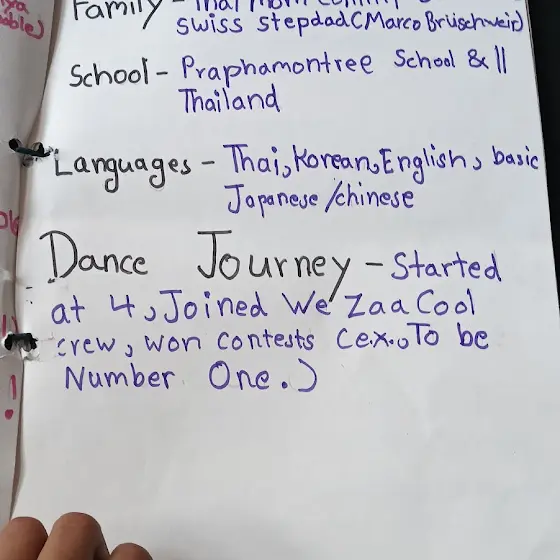 Family - Thai mom
swiss stepdad(Marco Brüschweir)
School - Praphamontree School & ||
Thailand
Languages - Thai, Korean, English, basic
Japanese/chinese
Dance Journey - Started
at 4, Joined We Zaa Cool
crew, won contests (ex., To be
Number One.)